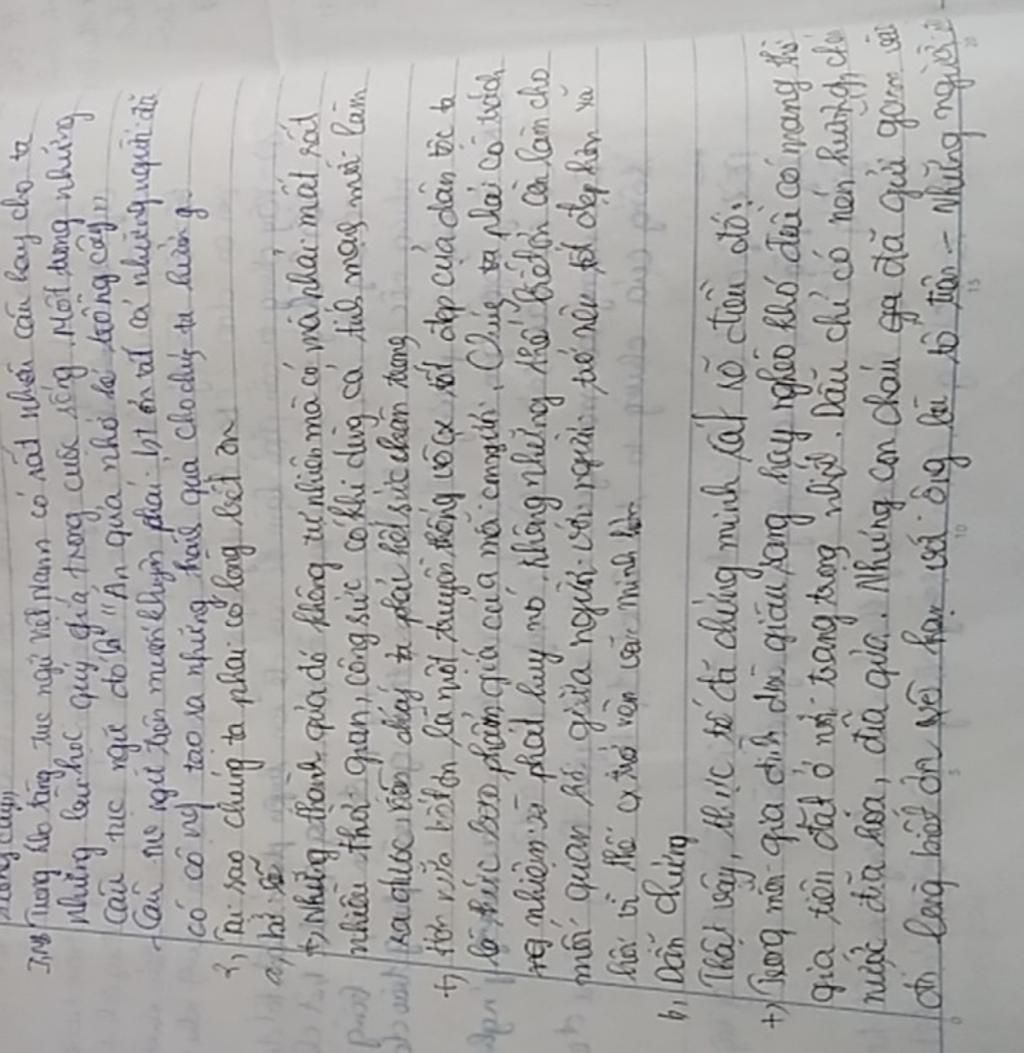 trồng cây"
Trong kho tàng tục ngữ Việt Nam có rất nhiều câu hay cho ta
những bài học quý giá trong cuộc sống. Một trong những
câu tục ngữ đó là "Ăn quả nhớ kẻ trồng cây"
- Câu tục ngữ trên muốn khuyên phải biết ơn tất cả những người đã
có công tạo ra những thành quả cho chúng ta hưởng.
2, Tại sao chúng ta phải có lòng biết ơn
a, Lí lẽ
+, Những thành quả đó không tự nhiên mà có mà phải mất rất
nhiều thời gian, công sức có khi dùng cả tính mạng mới làm
ra được nên chúng ta phải hết sức trân trọng
+, Hơn nữa biết ơn là một truyền thống vô cx tốt đẹp của dân tộc ta
là thước đo phẩm giá của mỗi con người. Chúng ta phải có trách
nhiệm phát huy nó. Không những thế biết ơn còn làm cho
mối quan hệ giữa người với người trở nên tốt đẹp hơn xã
hội vì thế cx trở nên văn minh hơn
b, Dẫn chứng
Thật vậy, thực tế đã chứng minh rất rõ điều đó:
+, Trong mỗi gia đình dù giàu sang hay nghèo khó đều có mang thờ
gia tiên đặt ở nơi trang trọng nhất. Dẫu chỉ có nén hương, chén
nước đĩa hoa, đĩa quả. Nhưng con cháu đã gửi gắm vào
đó lòng biết ơn vô hạn với ông bà tổ tiên - Những người